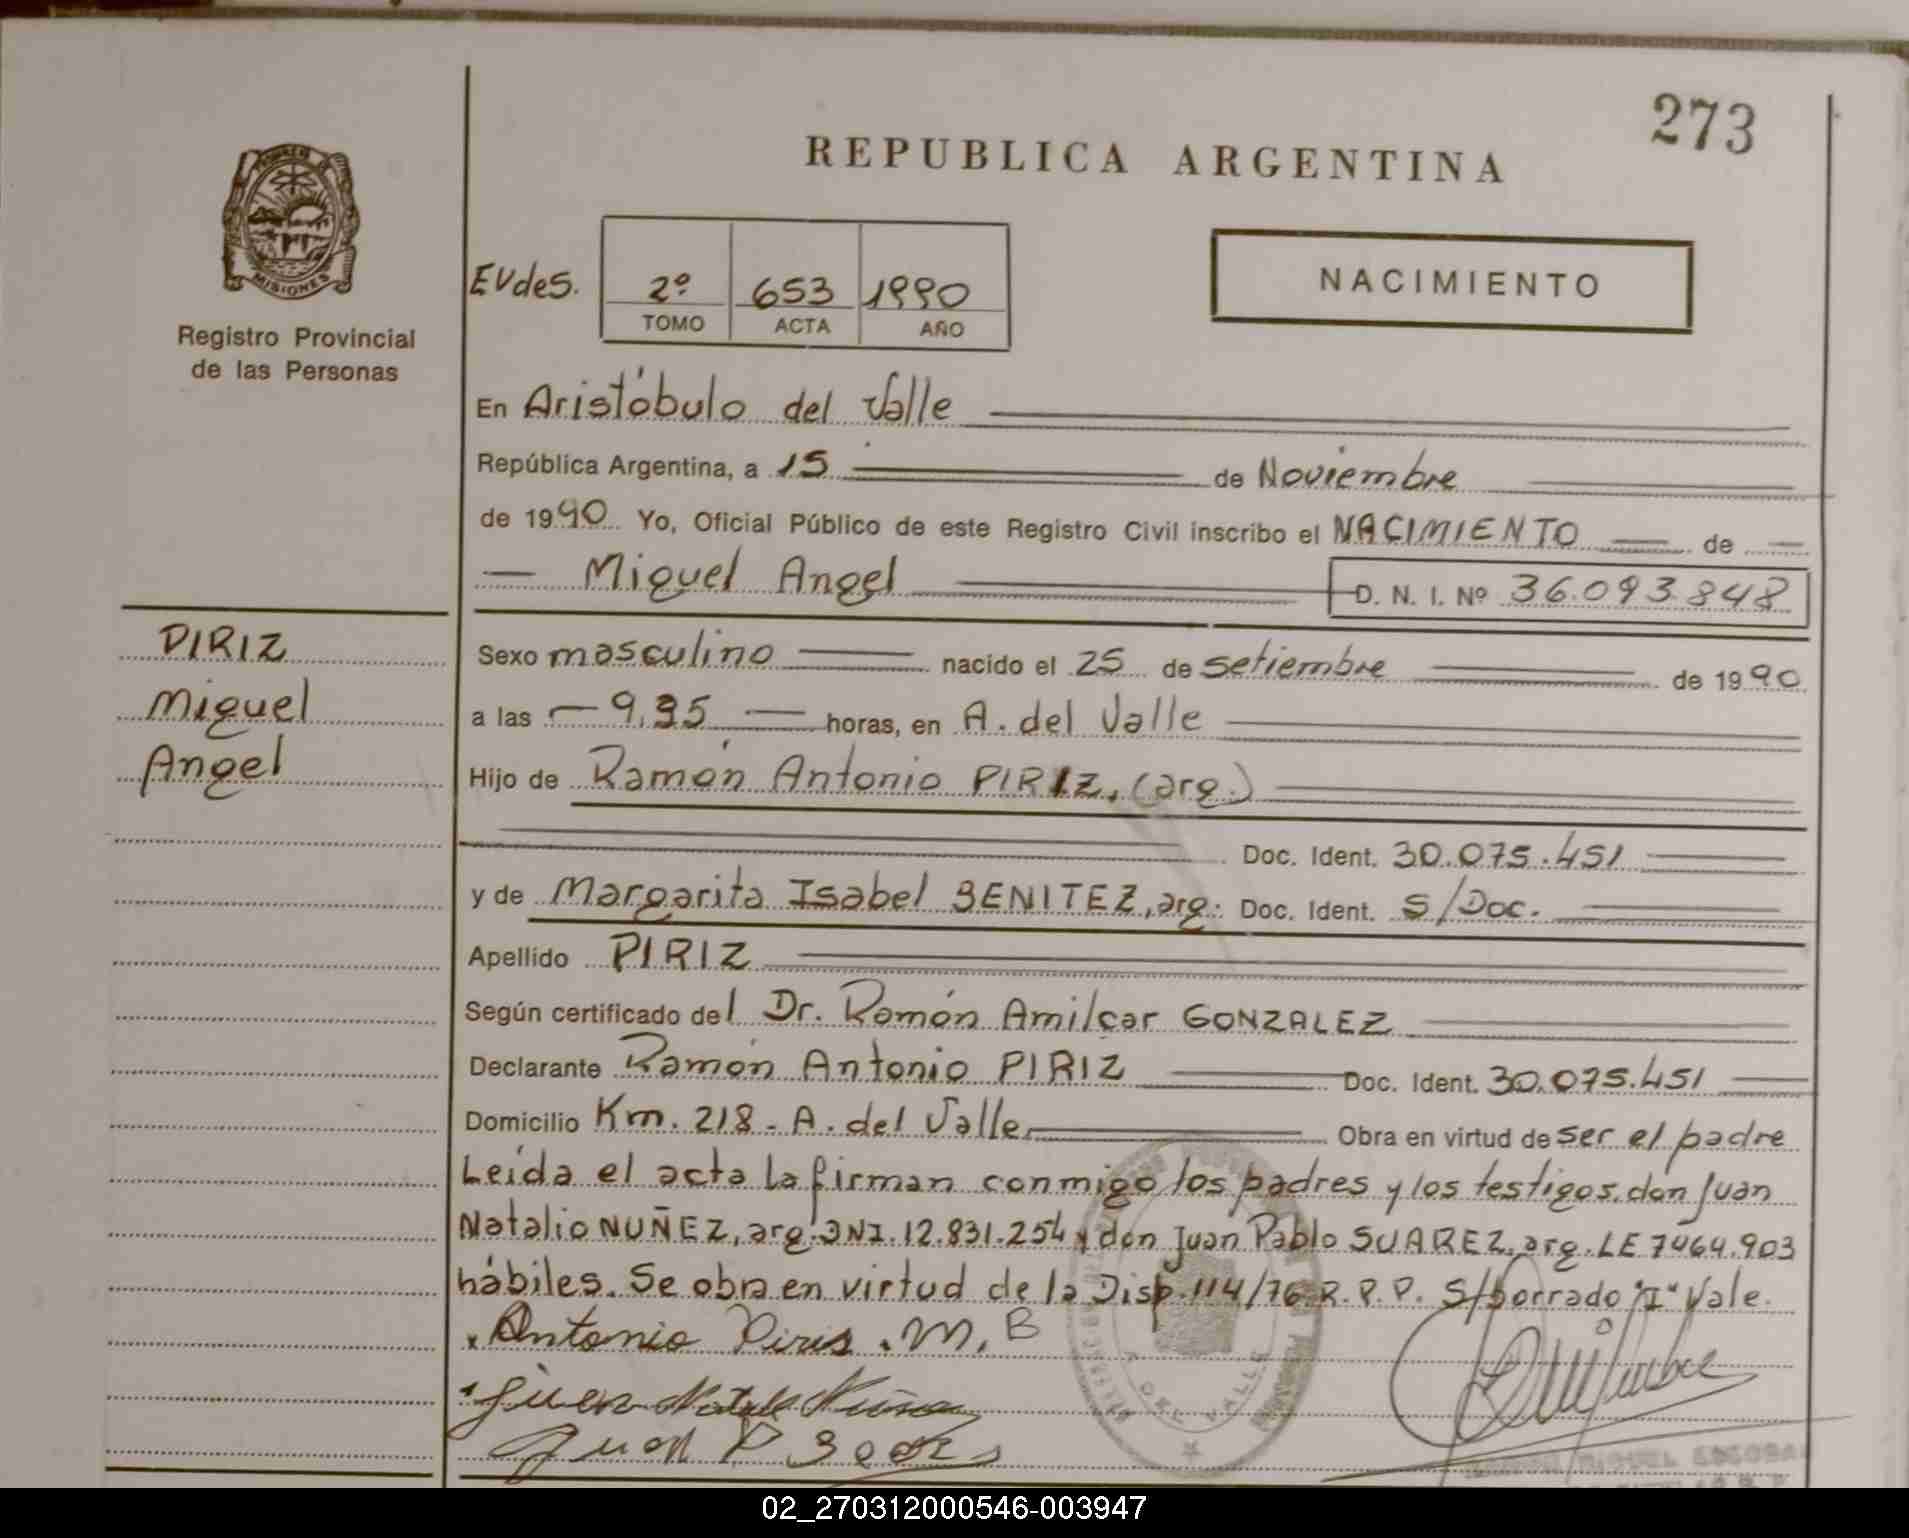 273
REPUBLICA ARGENTINA
MISIONES
Registro Provincial
de las Personas
EVdes.
2º 653 1990
TOMO ACTA AÑO
NACIMIENTO
En Aristóbulo del Valle
República Argentina, a 15 de Noviembre
de 1990 Yo, Oficial Público de este Registro Civil inscribo el NACIMIENTO de
Miguel Angel D. N. I. Nº 36.093.848
PIRIZ
Miguel
Angel
Sexo masculino nacido el 25 de setiembre de 1990
a las 9,35 horas, en A. del Valle
Hijo de Ramón Antonio PIRIZ, (arg.)
Doc. Ident. 30.075.451
y de Margarita Isabel BENITEZ, arg. Doc. Ident. S/Doc.
Apellido PIRIZ
Según certificado del Dr. Ramón Amilcar GONZALEZ
Declarante Ramón Antonio PIRIZ Doc. Ident. 30.075.451
Domicilio Km. 218 - A. del Valle Obra en virtud de ser el padre
Leída el acta la firman conmigo los padres y los testigos don Juan
Natalio NUÑEZ, arg. DNI. 12.831.254 y don Juan Pablo SUAREZ, arg. LE 7464.903
hábiles. Se obra en virtud de la Disp. 114/76 R.P.P. S/borrado "I" Vale.
Antonio Piris . M, B
Juan P
A. DEL VALLE
MIGUEL ESCOBAR
02_270312000546-003947